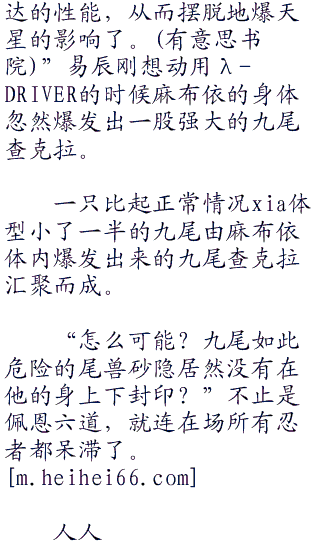 达的性能，从而摆脱地爆天
星的影响了。(有意思书
院)”易辰刚想动用λ-
DRIVER的时候麻布依的身体
忽然爆发出一股强大的九尾
查克拉。
一只比起正常情况xia体
型小了一半的九尾由麻布依
体内爆发出来的九尾查克拉
汇聚而成。
“怎么可能？九尾如此
危险的尾兽砂隐居然没有在
他的身上下封印？”不止是
佩恩六道，就连在场所有忍
者都呆滞了。
[m.heihei66.com]
人人